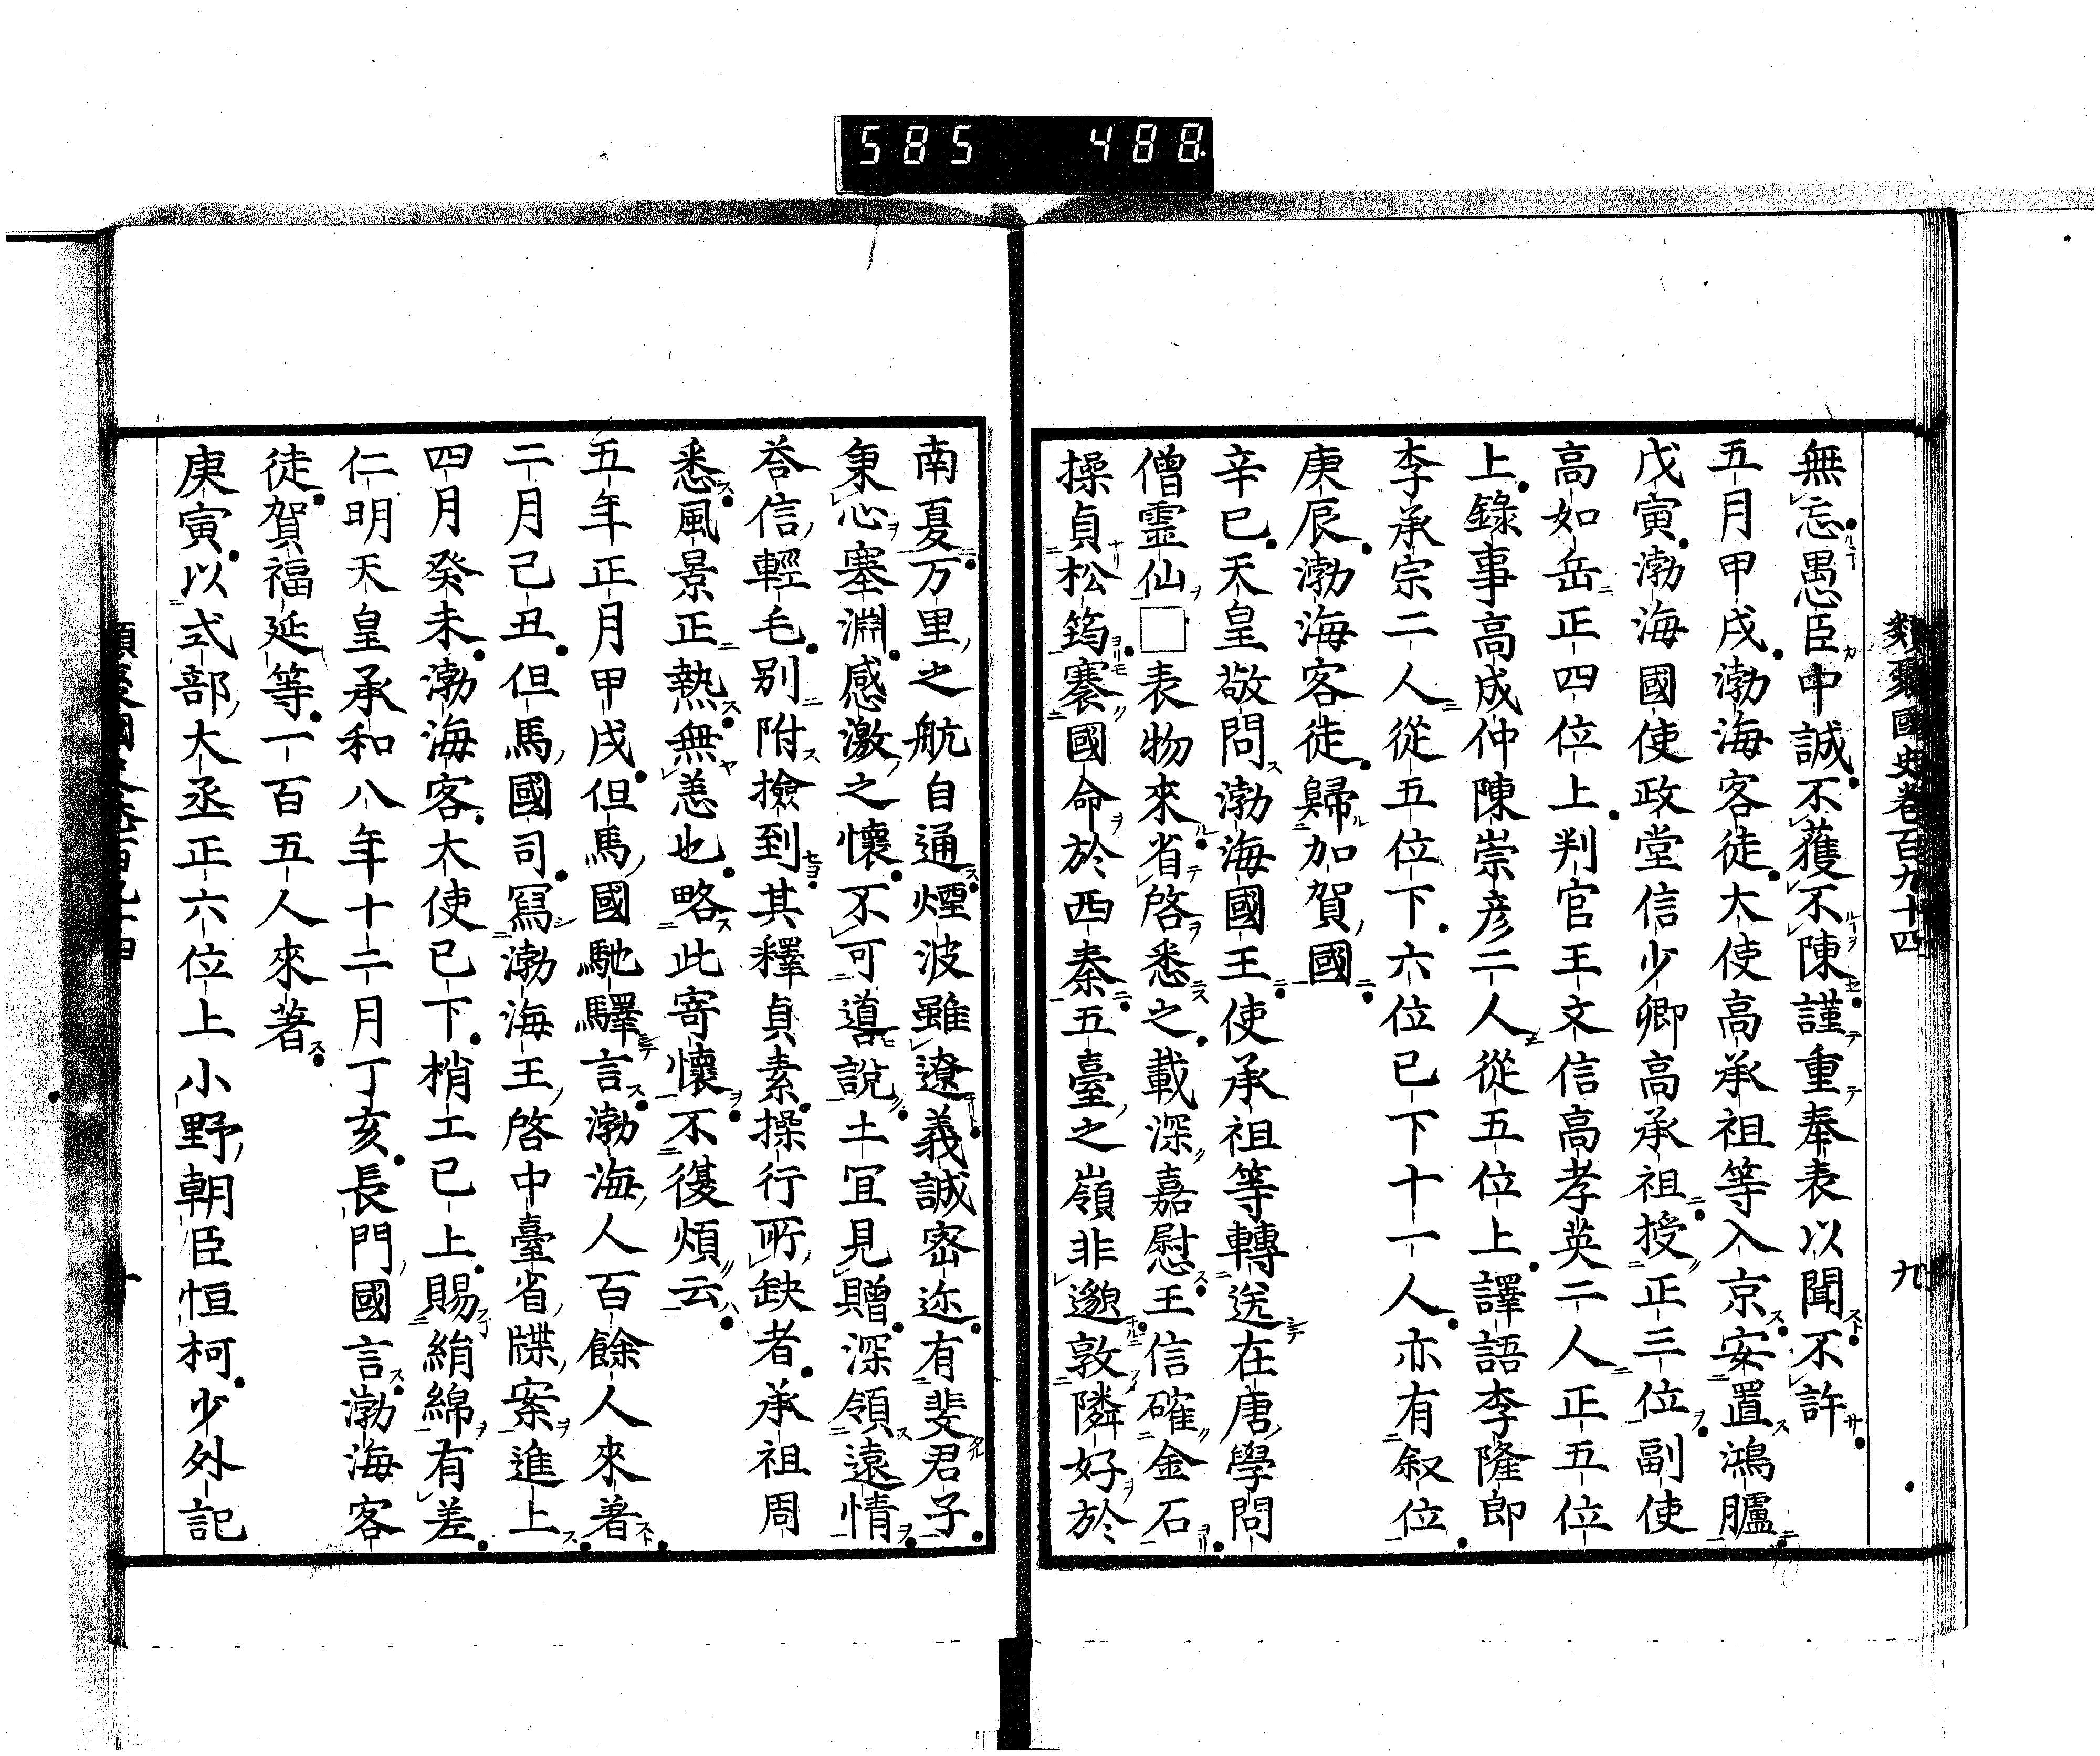 585 488
類聚國史卷百九十四 九
無忘愚臣中誠不獲不陳謹重奉表以聞不許
五月甲戌渤海客徒大使高承祖等入京安置鴻臚
戊寅渤海國使政堂信少卿高承祖授正三位副使
高如岳正四位上判官王文信高孝英二人正五位
上錄事高成仲陳崇彥二人從五位上譯語李隆郎
李承宗二人從五位下六位已下十一人亦有叙位
庚辰渤海客徒歸加賀國
辛巳天皇敬問渤海國王使承祖等轉送在唐學問
僧靈仙□表物來省啓悉之載深嘉慰王信確金石
操貞松筠褰國命於西秦五臺之嶺非邈敦隣好於
南夏万里之航自通煙波雖遼義誠密迩有斐君子
秉心塞淵感激之懷不可導說土宜見贈深領遠情
荅信輕毛別附撿到其釋貞素操行所缺者承祖周
悉風景正熱無恙也略此寄懷不復煩云
五年正月甲戌但馬國馳驛言渤海人百餘人來著
二月己丑但馬國司寫渤海王啓中臺省牒案進上
四月癸未渤海客大使已下梢工已上賜絹綿有差
仁明天皇承和八年十二月丁亥長門國言渤海客
徒賀福延等一百五人來著
庚寅以式部大丞正六位上小野朝臣恒柯少外記